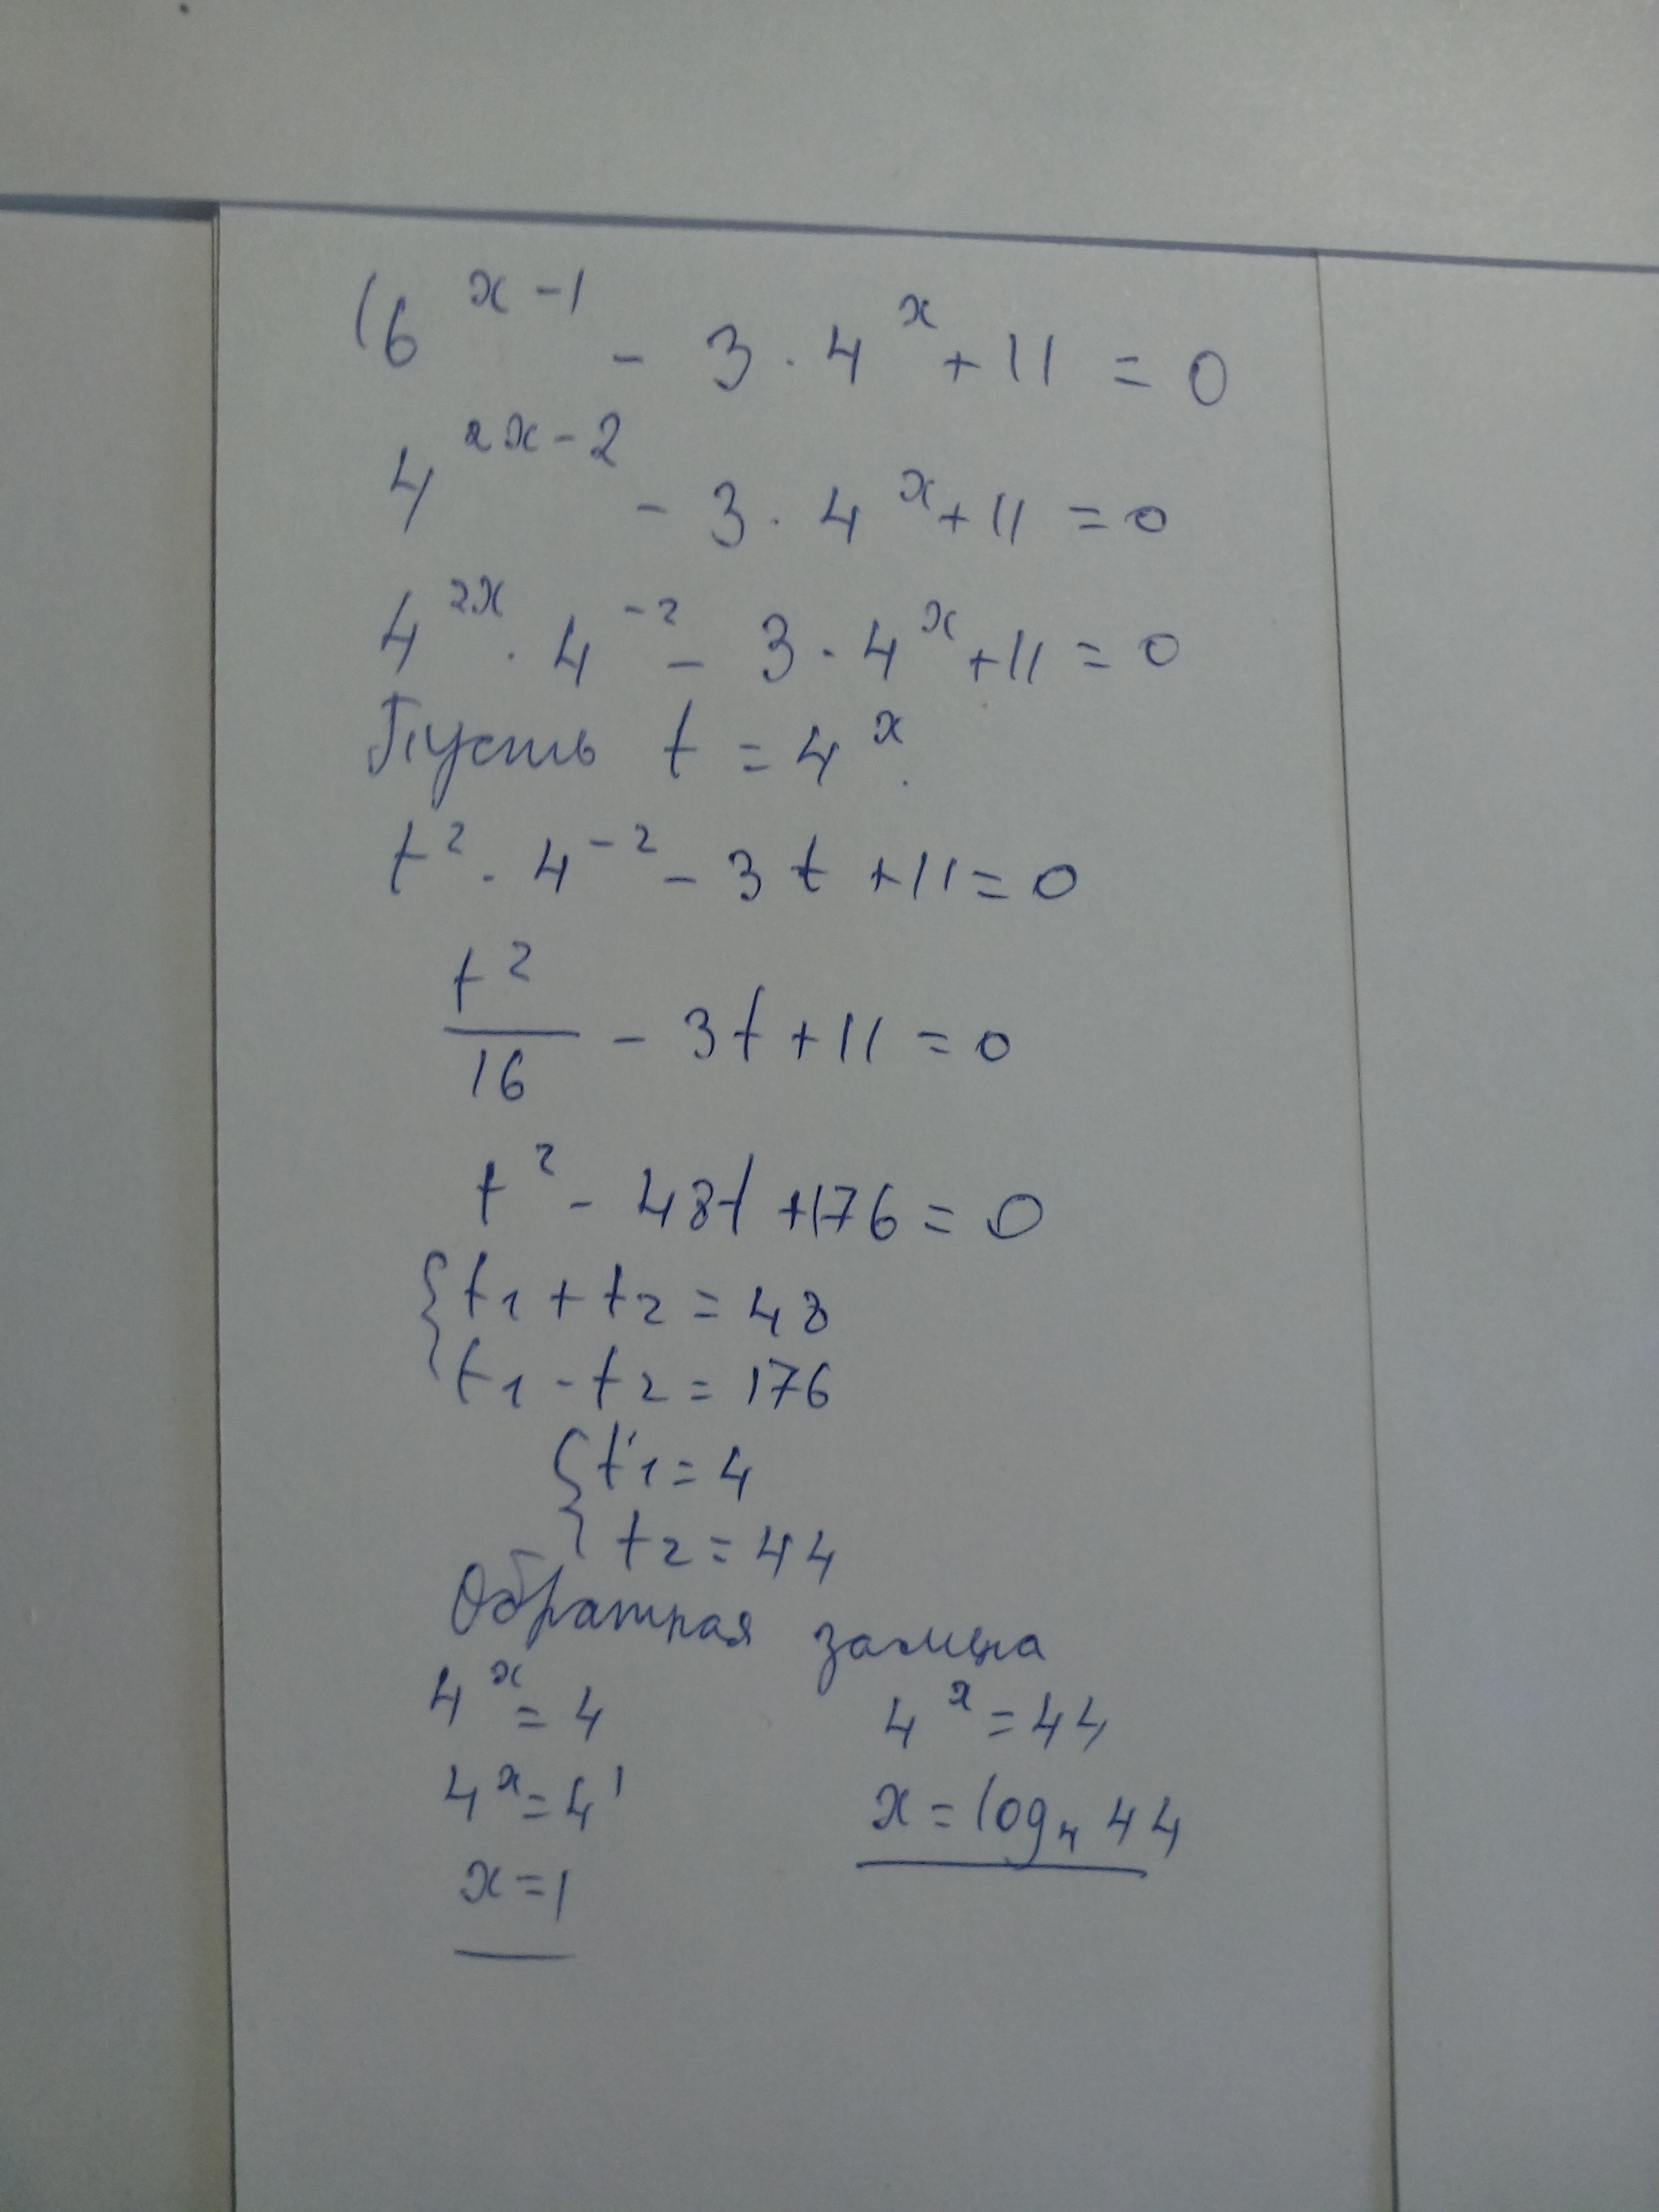 16^{x-1} - 3 · 4^x + 11 = 0
4^{2x-2} - 3 · 4^x + 11 = 0
4^{2x} · 4^{-2} - 3 · 4^x + 11 = 0
Пусть t = 4^x.
t^2 · 4^{-2} - 3t + 11 = 0
t^2/16 - 3t + 11 = 0
t^2 - 48t + 176 = 0
{ t1 + t2 = 48
t1 · t2 = 176
{ t1 = 4
t2 = 44
Обратная замена
4^x = 4 4^x = 44
4^x = 4^1 x = log_4 44
x = 1